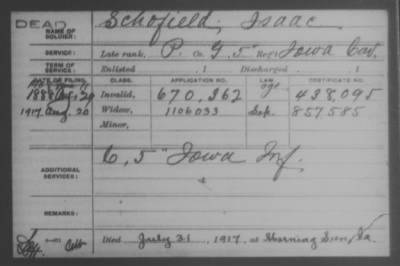 DEAD
NAME OF SOLDIER: Schofield, Isaac
SERVICE: Late rank, P. Co. G, 5" Reg't Iowa Cav.
TERM OF SERVICE: Enlisted , 1 Discharged , 1
DATE OF FILING. CLASS. APPLICATION NO. CERTIFICATE NO.
1888 20 Invalid, 670,262 428,095
1917 Aug. 20 Widow, 1106033 857585
Minor,
ADDITIONAL SERVICES: C, 5" Iowa Inf.
REMARKS:
Died July 31, 1917, at Morning Sun, Ia.